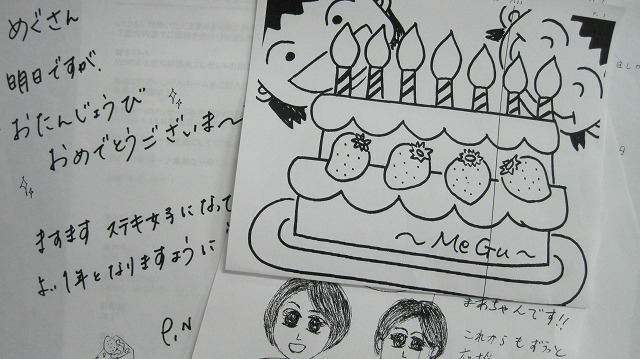 めぐさん
明日ですが、
おたんじょうび
おめでとうございま〜
ますます ステキ女子になって
よい1年となりますように
P.N
〜MeGu〜
まわちゃんです!!
これからも ずっと